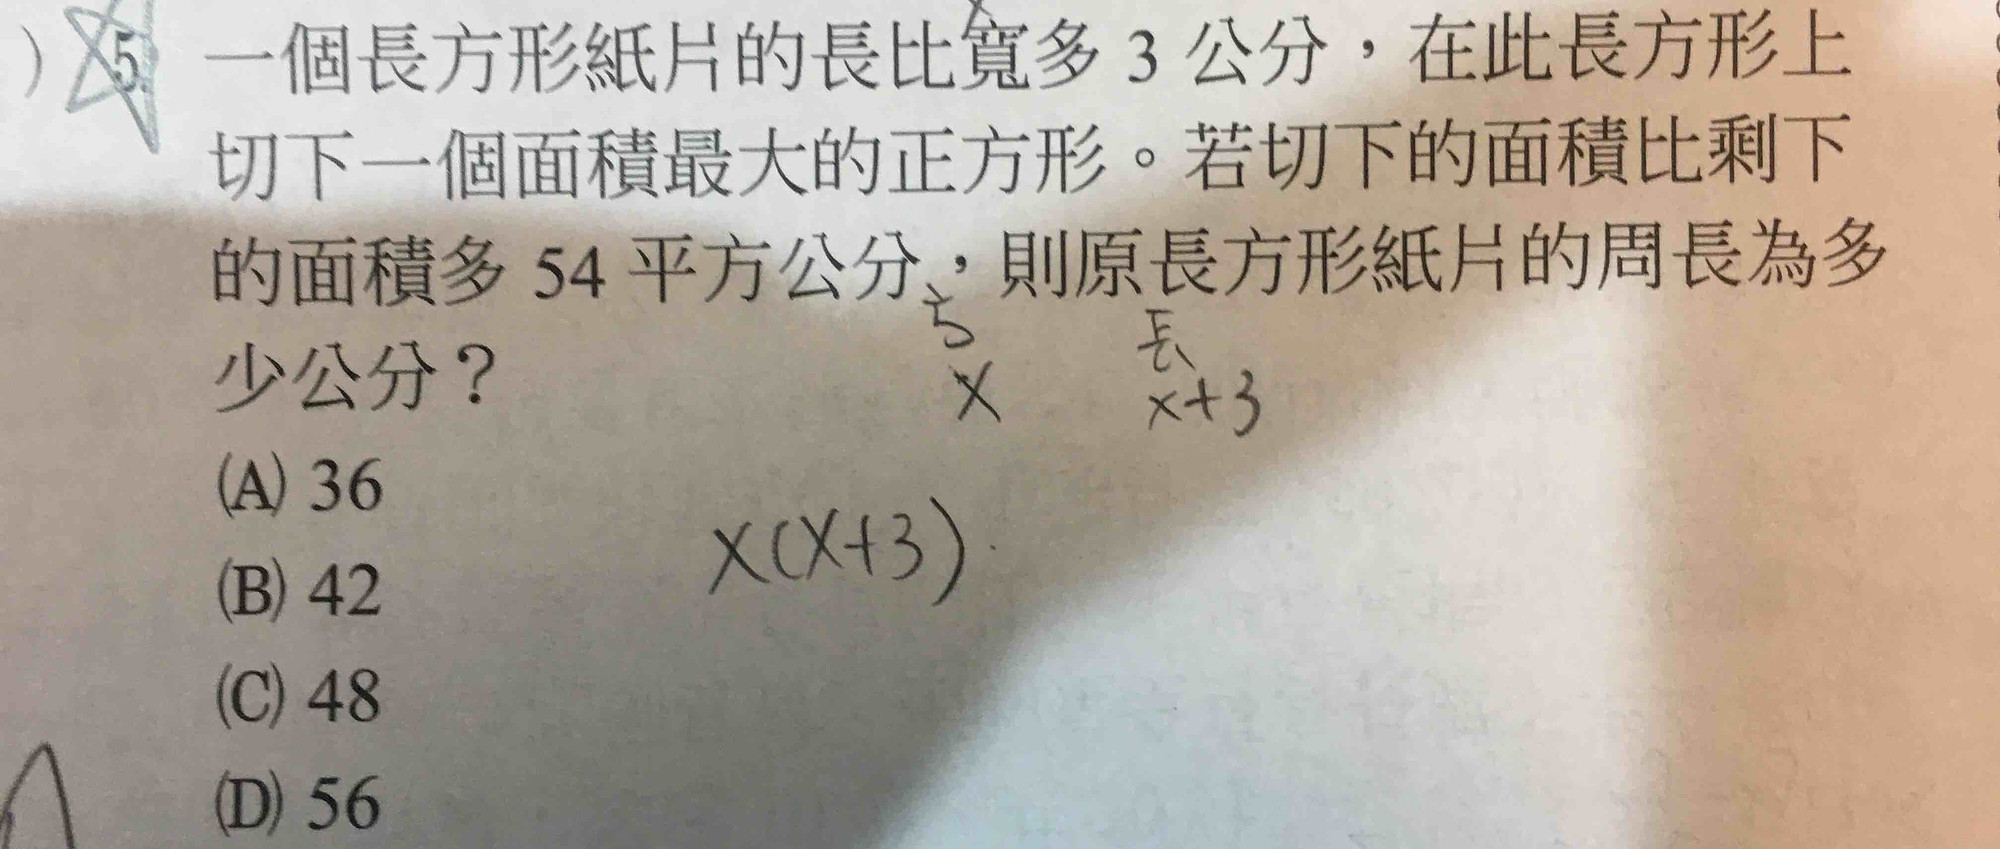 ) 5. 一個長方形紙片的長比寬多 3 公分，在此長方形上
切下一個面積最大的正方形。若切下的面積比剩下
的面積多 54 平方公分，則原長方形紙片的周長為多
少公分？
x x+3
(A) 36
x(x+3)
(B) 42
(C) 48
(D) 56